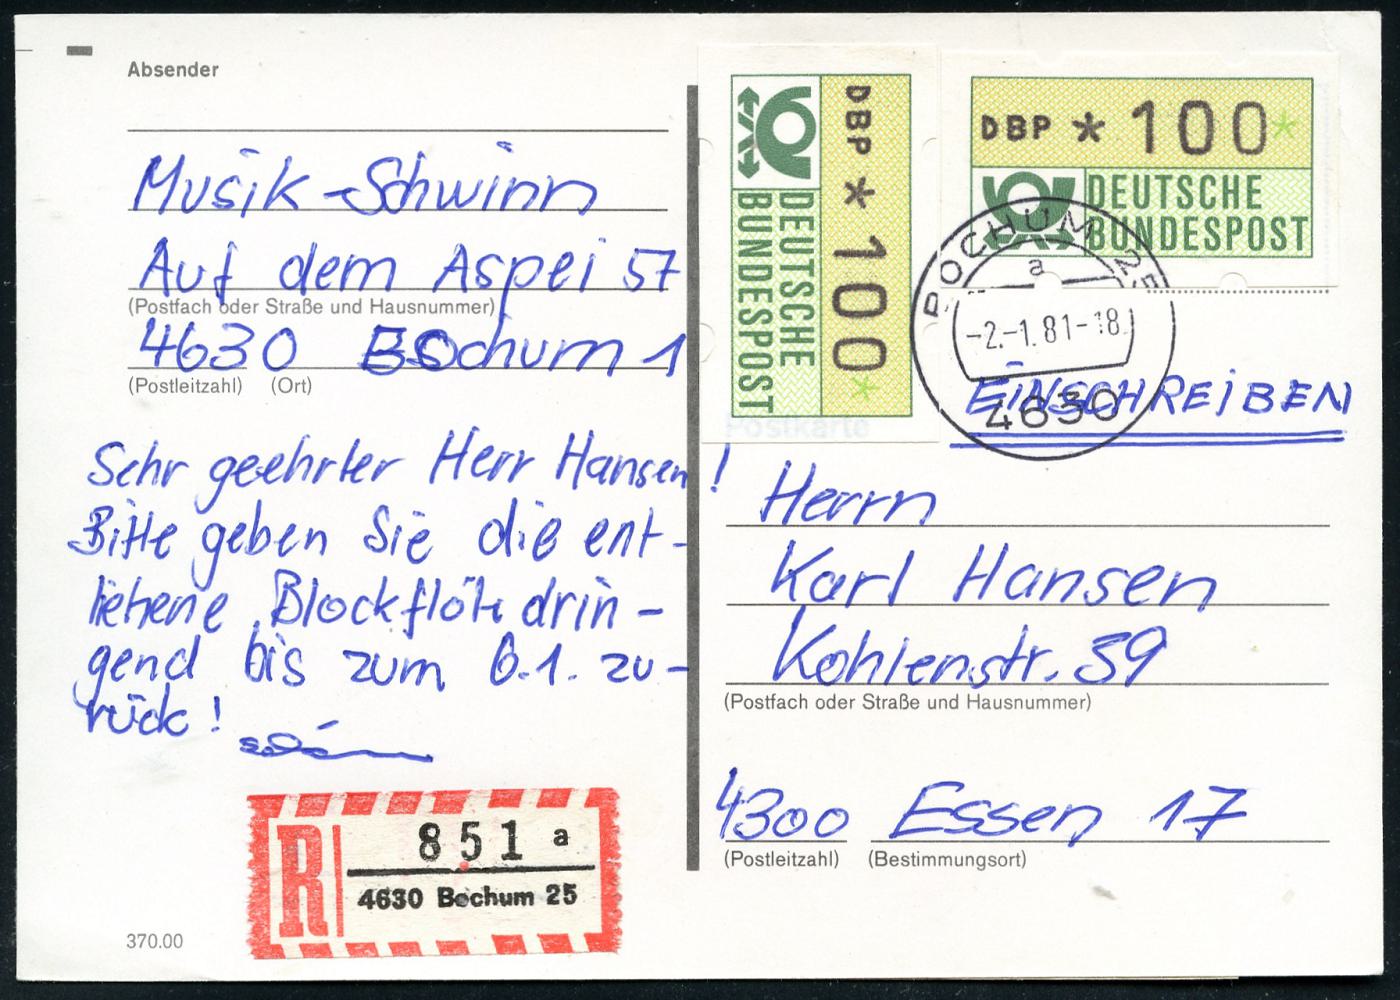 Absender
Musik-Schwinn
Auf dem Aspei 57
(Postfach oder Straße und Hausnummer)
4630 Bochum 1
(Postleitzahl) (Ort)
Sehr geehrter Herr Hansen!
Bitte geben Sie die ent-
liehene Blockflöte drin-
gend bis zum 6.1. zu-
rück!
R
851 a
4630 Bochum 25
370.00
DBP * 100*
DEUTSCHE
BUNDESPOST
DBP * 100*
DEUTSCHE
BUNDESPOST
BOCHUM 25
a
-2.-1.81-18
4630
Postkarte
EINSCHREIBEN
Herrn
Karl Hansen
Kohlenstr. 59
(Postfach oder Straße und Hausnummer)
4300 Essen 17
(Postleitzahl) (Bestimmungsort)